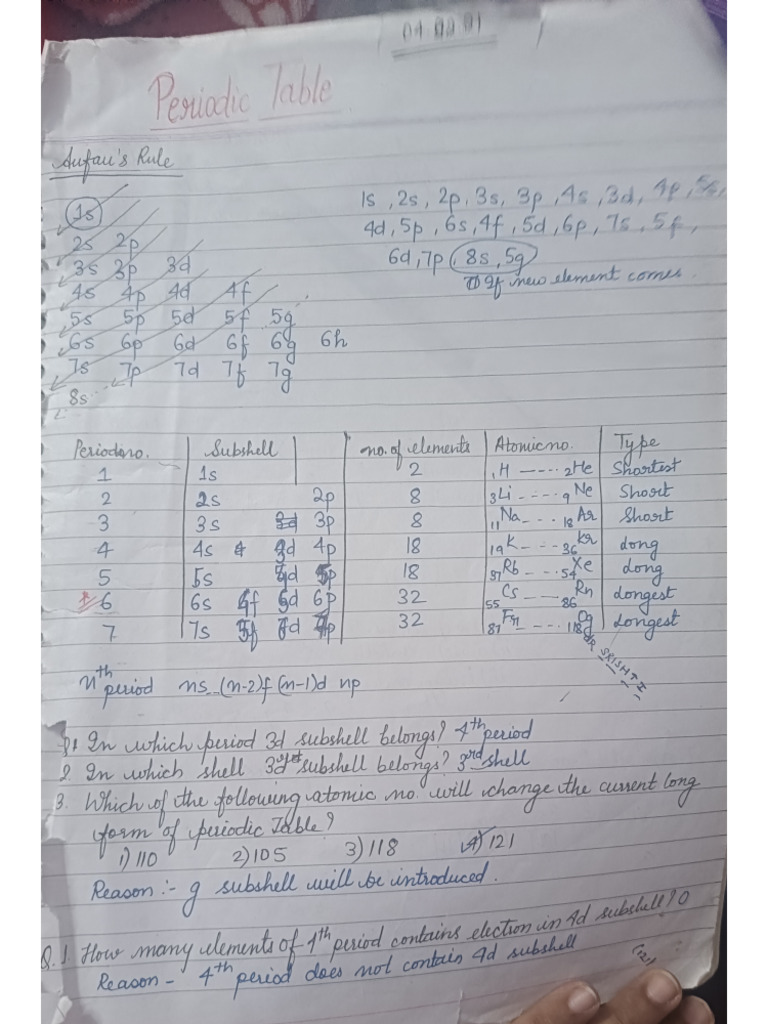 Periodic Table
Aufau's Rule
1s
2s 2p
3s 3p 3d
4s 4p 4d 4f
5s 5p 5d 5f 5g
6s 6p 6d 6f 6g 6h
7s 7p 7d 7f 7g
8s
1s, 2s, 2p, 3s, 3p, 4s, 3d, 4p, 5s,
4d, 5p, 6s, 4f, 5d, 6p, 7s, 5f,
6d, 7p, 8s, 5g
If new element comes.
Period no. Subshell no. of elements Atomic no. Type
1 1s 2 1H ---- 2He Shortest
2 2s 2p 8 3Li ---- 9Ne Short
3 3s 3p 8 11Na --- 18Ar Short
4 4s 3d 4p 18 19K --- 36Kr Long
5 5s 4d 5p 18 37Rb --- 54Xe Long
6 6s 4f 5d 6p 32 55Cs --- 86Rn Longest
7 7s 5f 6d 7p 32 87Fr ---- 118Og Longest
SRISHTI
nth period ns (n-2)f (n-1)d np
Q1 In which period 3d subshell belongs? 4th period
2. In which shell 3d subshell belongs? 3rd shell
3. Which of the following atomic no. will change the current long
form of periodic Table?
1) 110 2) 105 3) 118 4) 121
Reason :- g subshell will be introduced.
Q.1. How many elements of 4th period contains election in 4d subshell? 0
Reason - 4th period does not contain 4d subshell
(121)